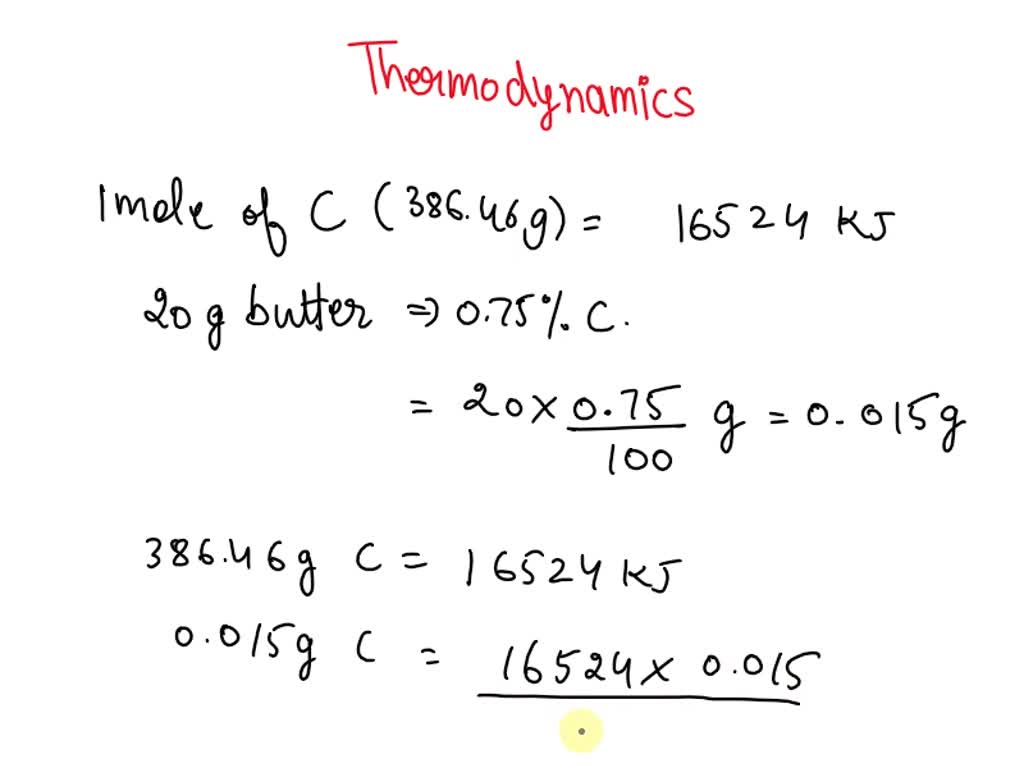 Thermodynamics
1 mole of C (386.46g) = 16524 KJ
20 g butter ⇒ 0.75% C.
= 20 × 0.75 / 100 g = 0.015g
386.46g C = 16524 KJ
0.015g C = 16524 × 0.015